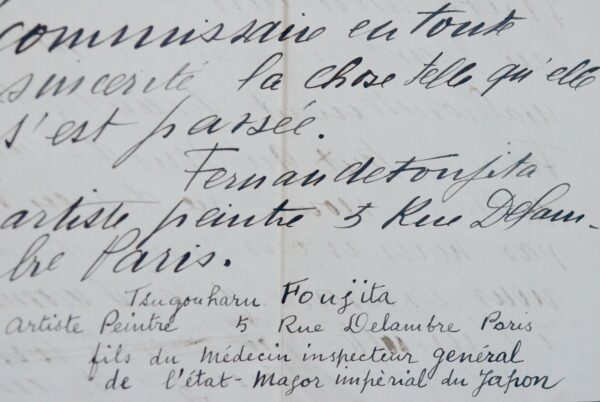 commissaire en toute
sincerité la chose telle qu'elle
s'est passée.
Fernande Foujita
artiste peintre 5 Rue Delam-
bre Paris.
Tsugouharu Foujita
Artiste Peintre 5 Rue Delambre Paris
fils du Médecin inspecteur général
de l'état-Major impérial du Japon